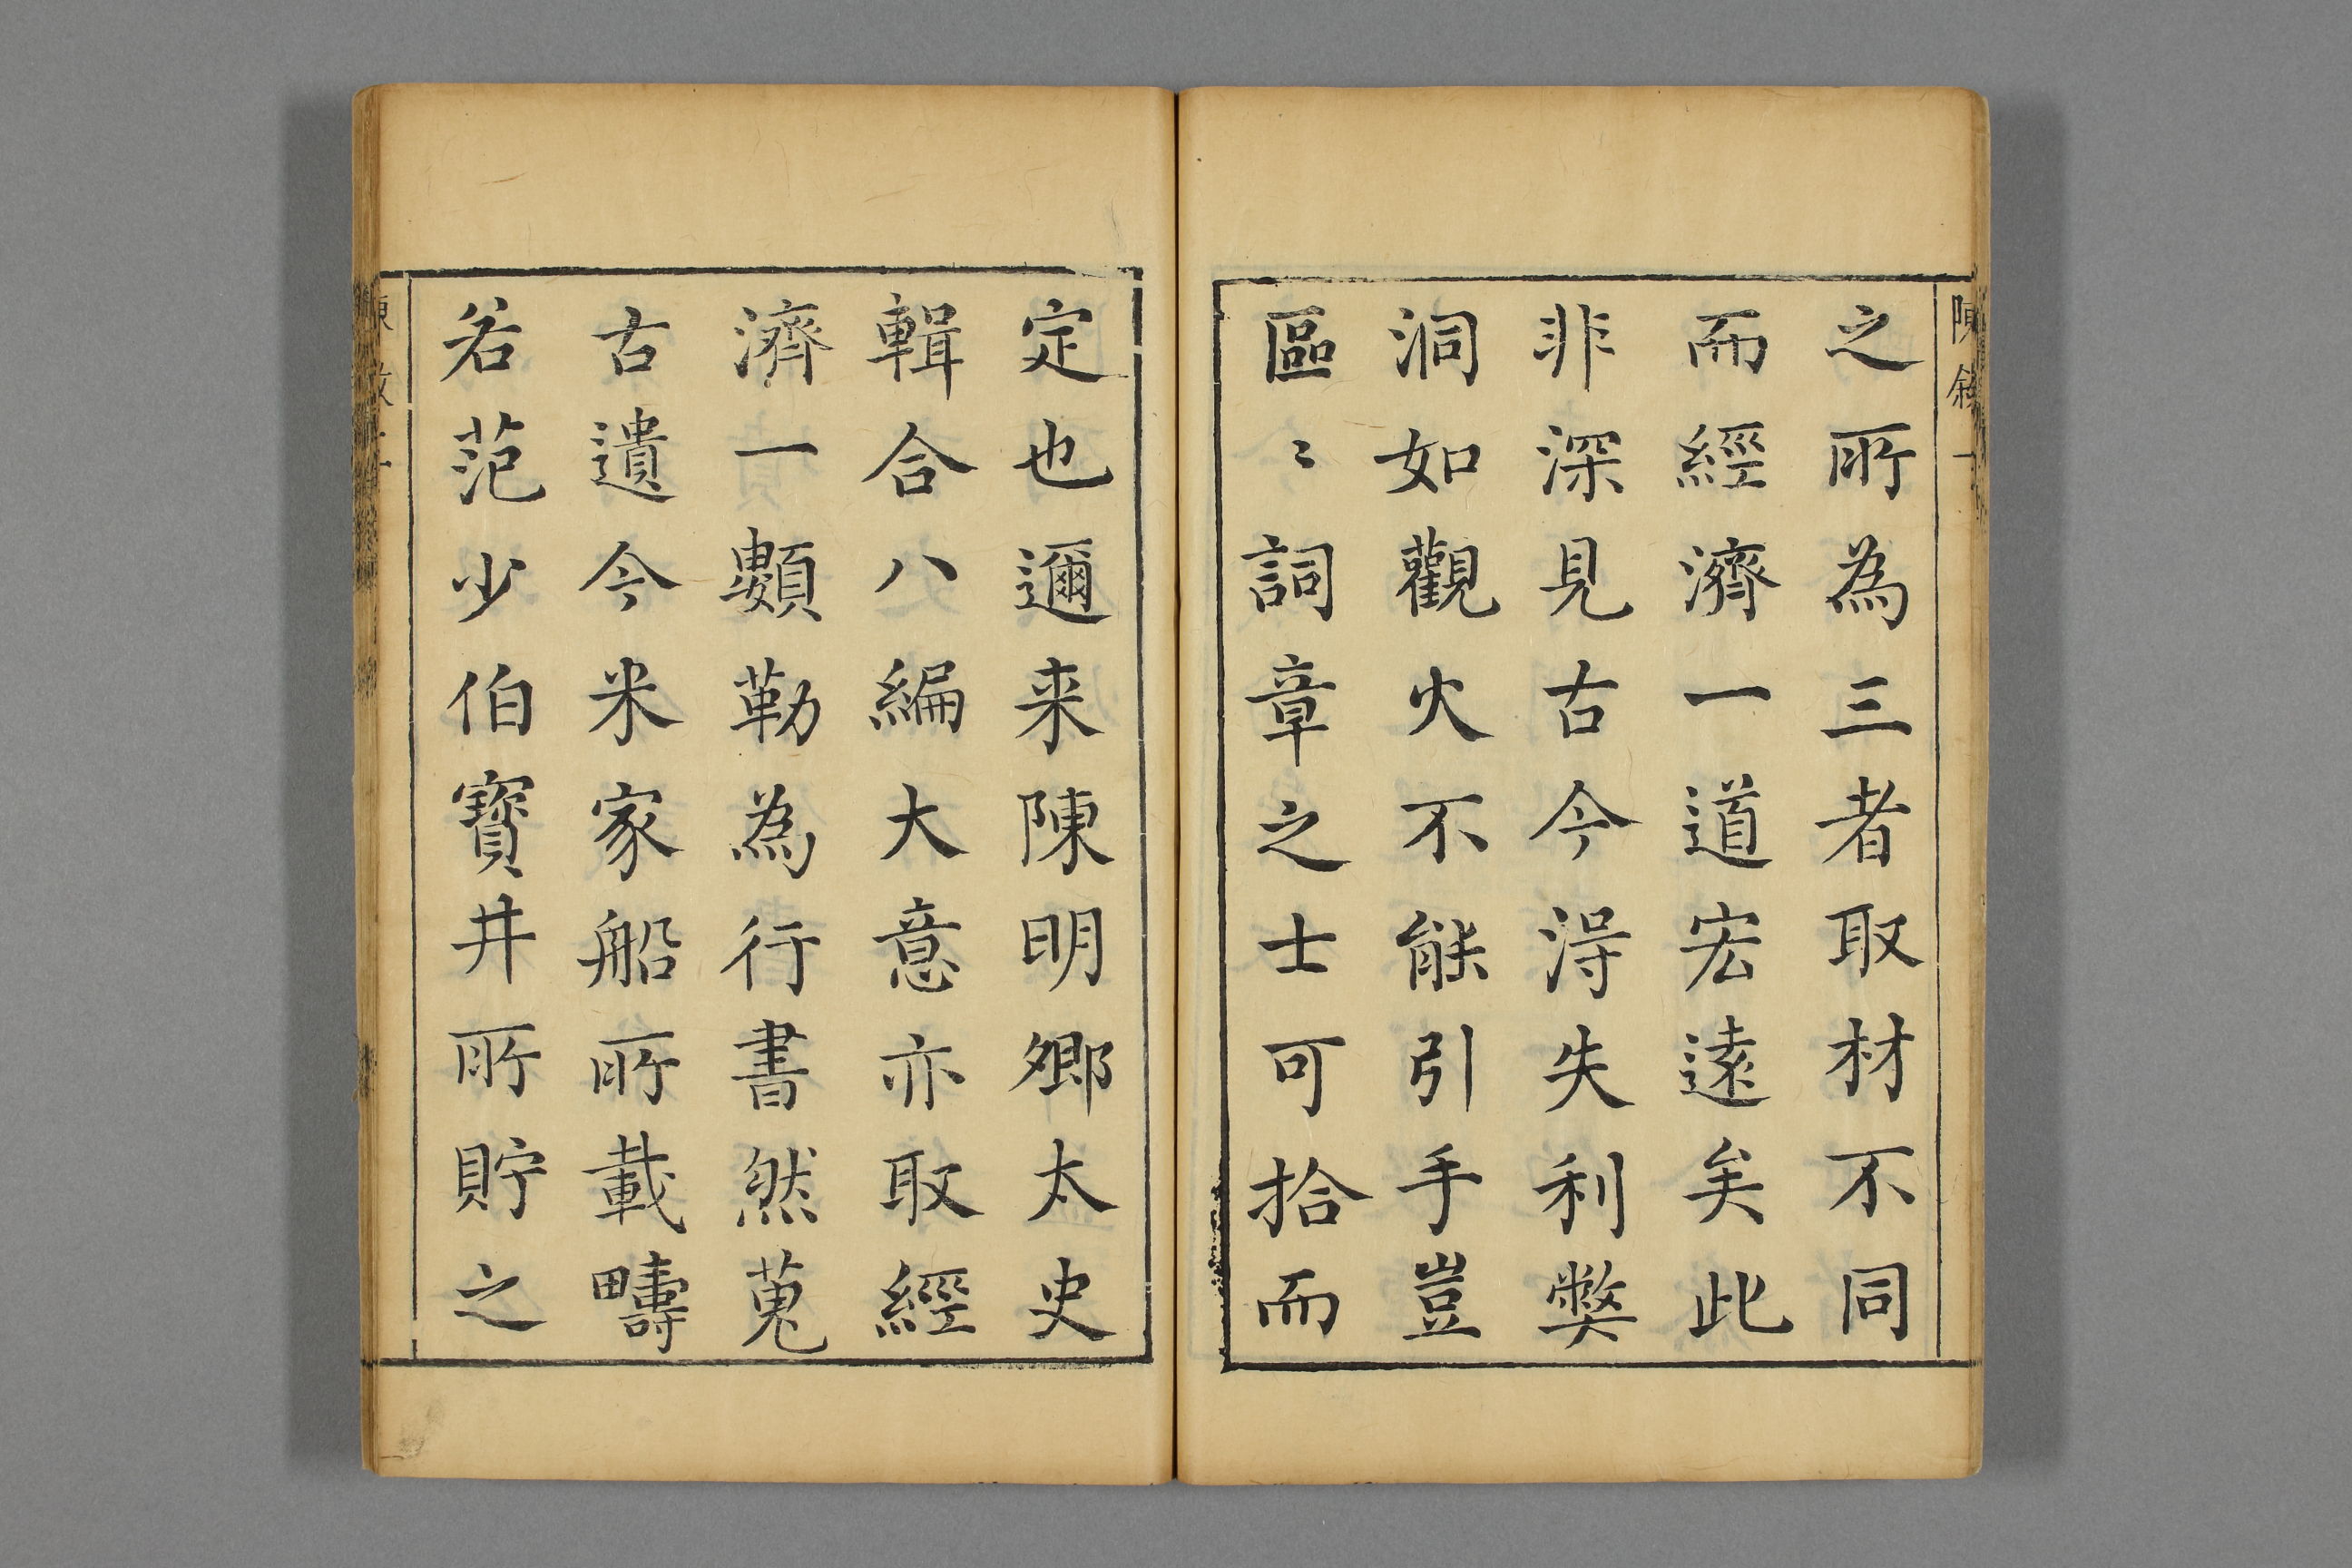 之所為三者取材不同
而經濟一道宏遠矣此
非深見古今淂失利弊
洞如觀火不能引手豈
區〻詞章之士可拾而
定也邇来陳明卿太史
輯合八編大意亦取經
濟一類勒為行書然蒐
古遺今米家船所載疇
若范少伯寶井所貯之